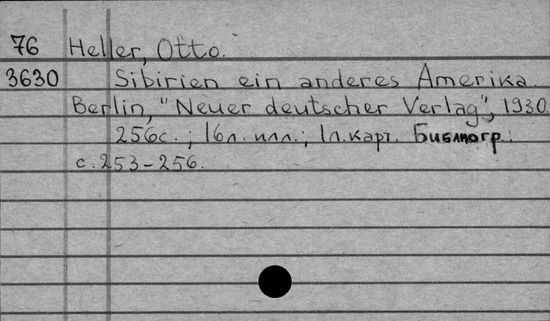 76 Heller, Otto.
3630 Sibirien ein anderes Amerika.
Berlin, "Neuer deutscher Verlag", 1930
256с.; 16л. илл.; 1л. карт. Библиогр.:
с. 253-256.